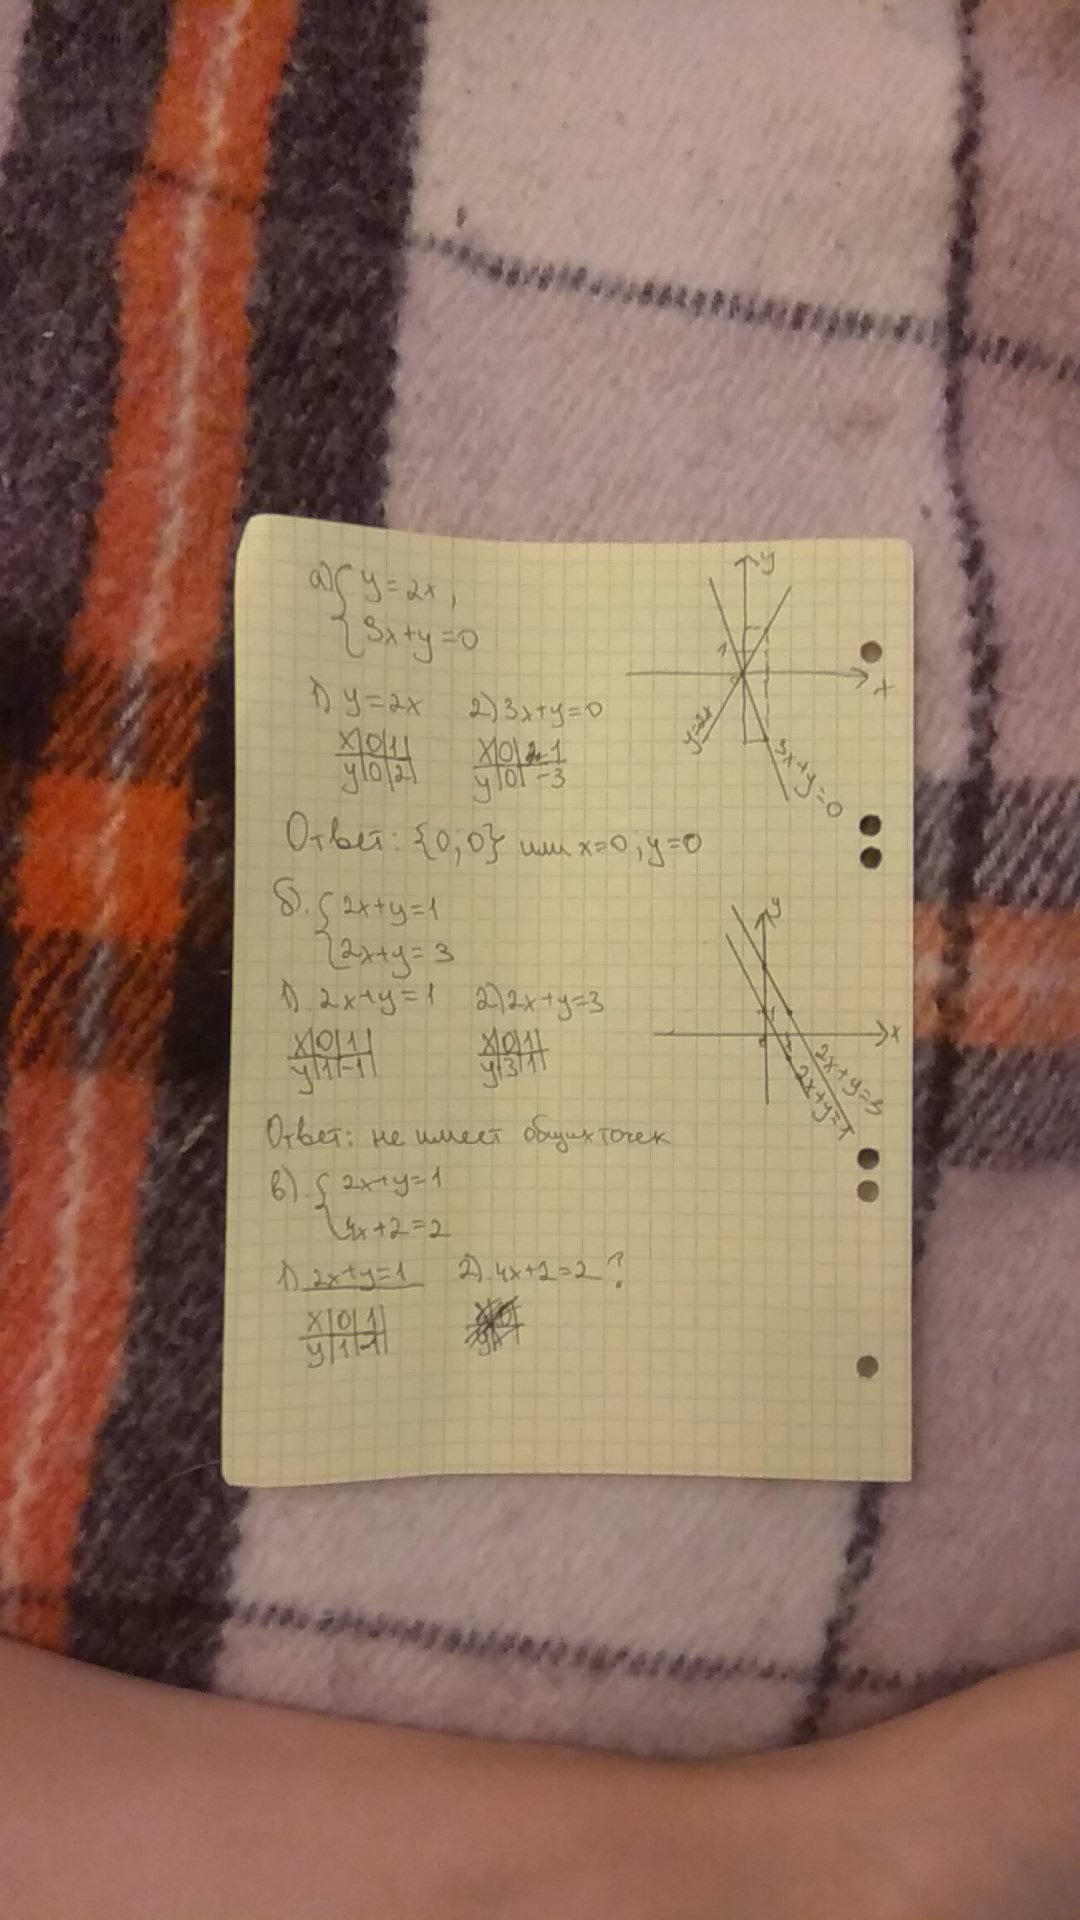 а) { y=2x,
3x+y=0
y
1
x
y=2x
3x+y=0
1) y=2x 2) 3x+y=0
x|0|1| x|0|1
y|0|2| y|0|-3
Ответ: {0;0} или x=0; y=0
б). { 2x+y=1
2x+y=3
y
x
2x+y=3
2x+y=1
1). 2x+y=1 2) 2x+y=3
x|0|1| x|0|1|
y|1|-1| y|3|1|
Ответ: не имеет общих точек
в). { 2x+y=1
4x+2=2
1) 2x+y=1 2). 4x+2=2 ?
x|0|1|
y|1|-1|